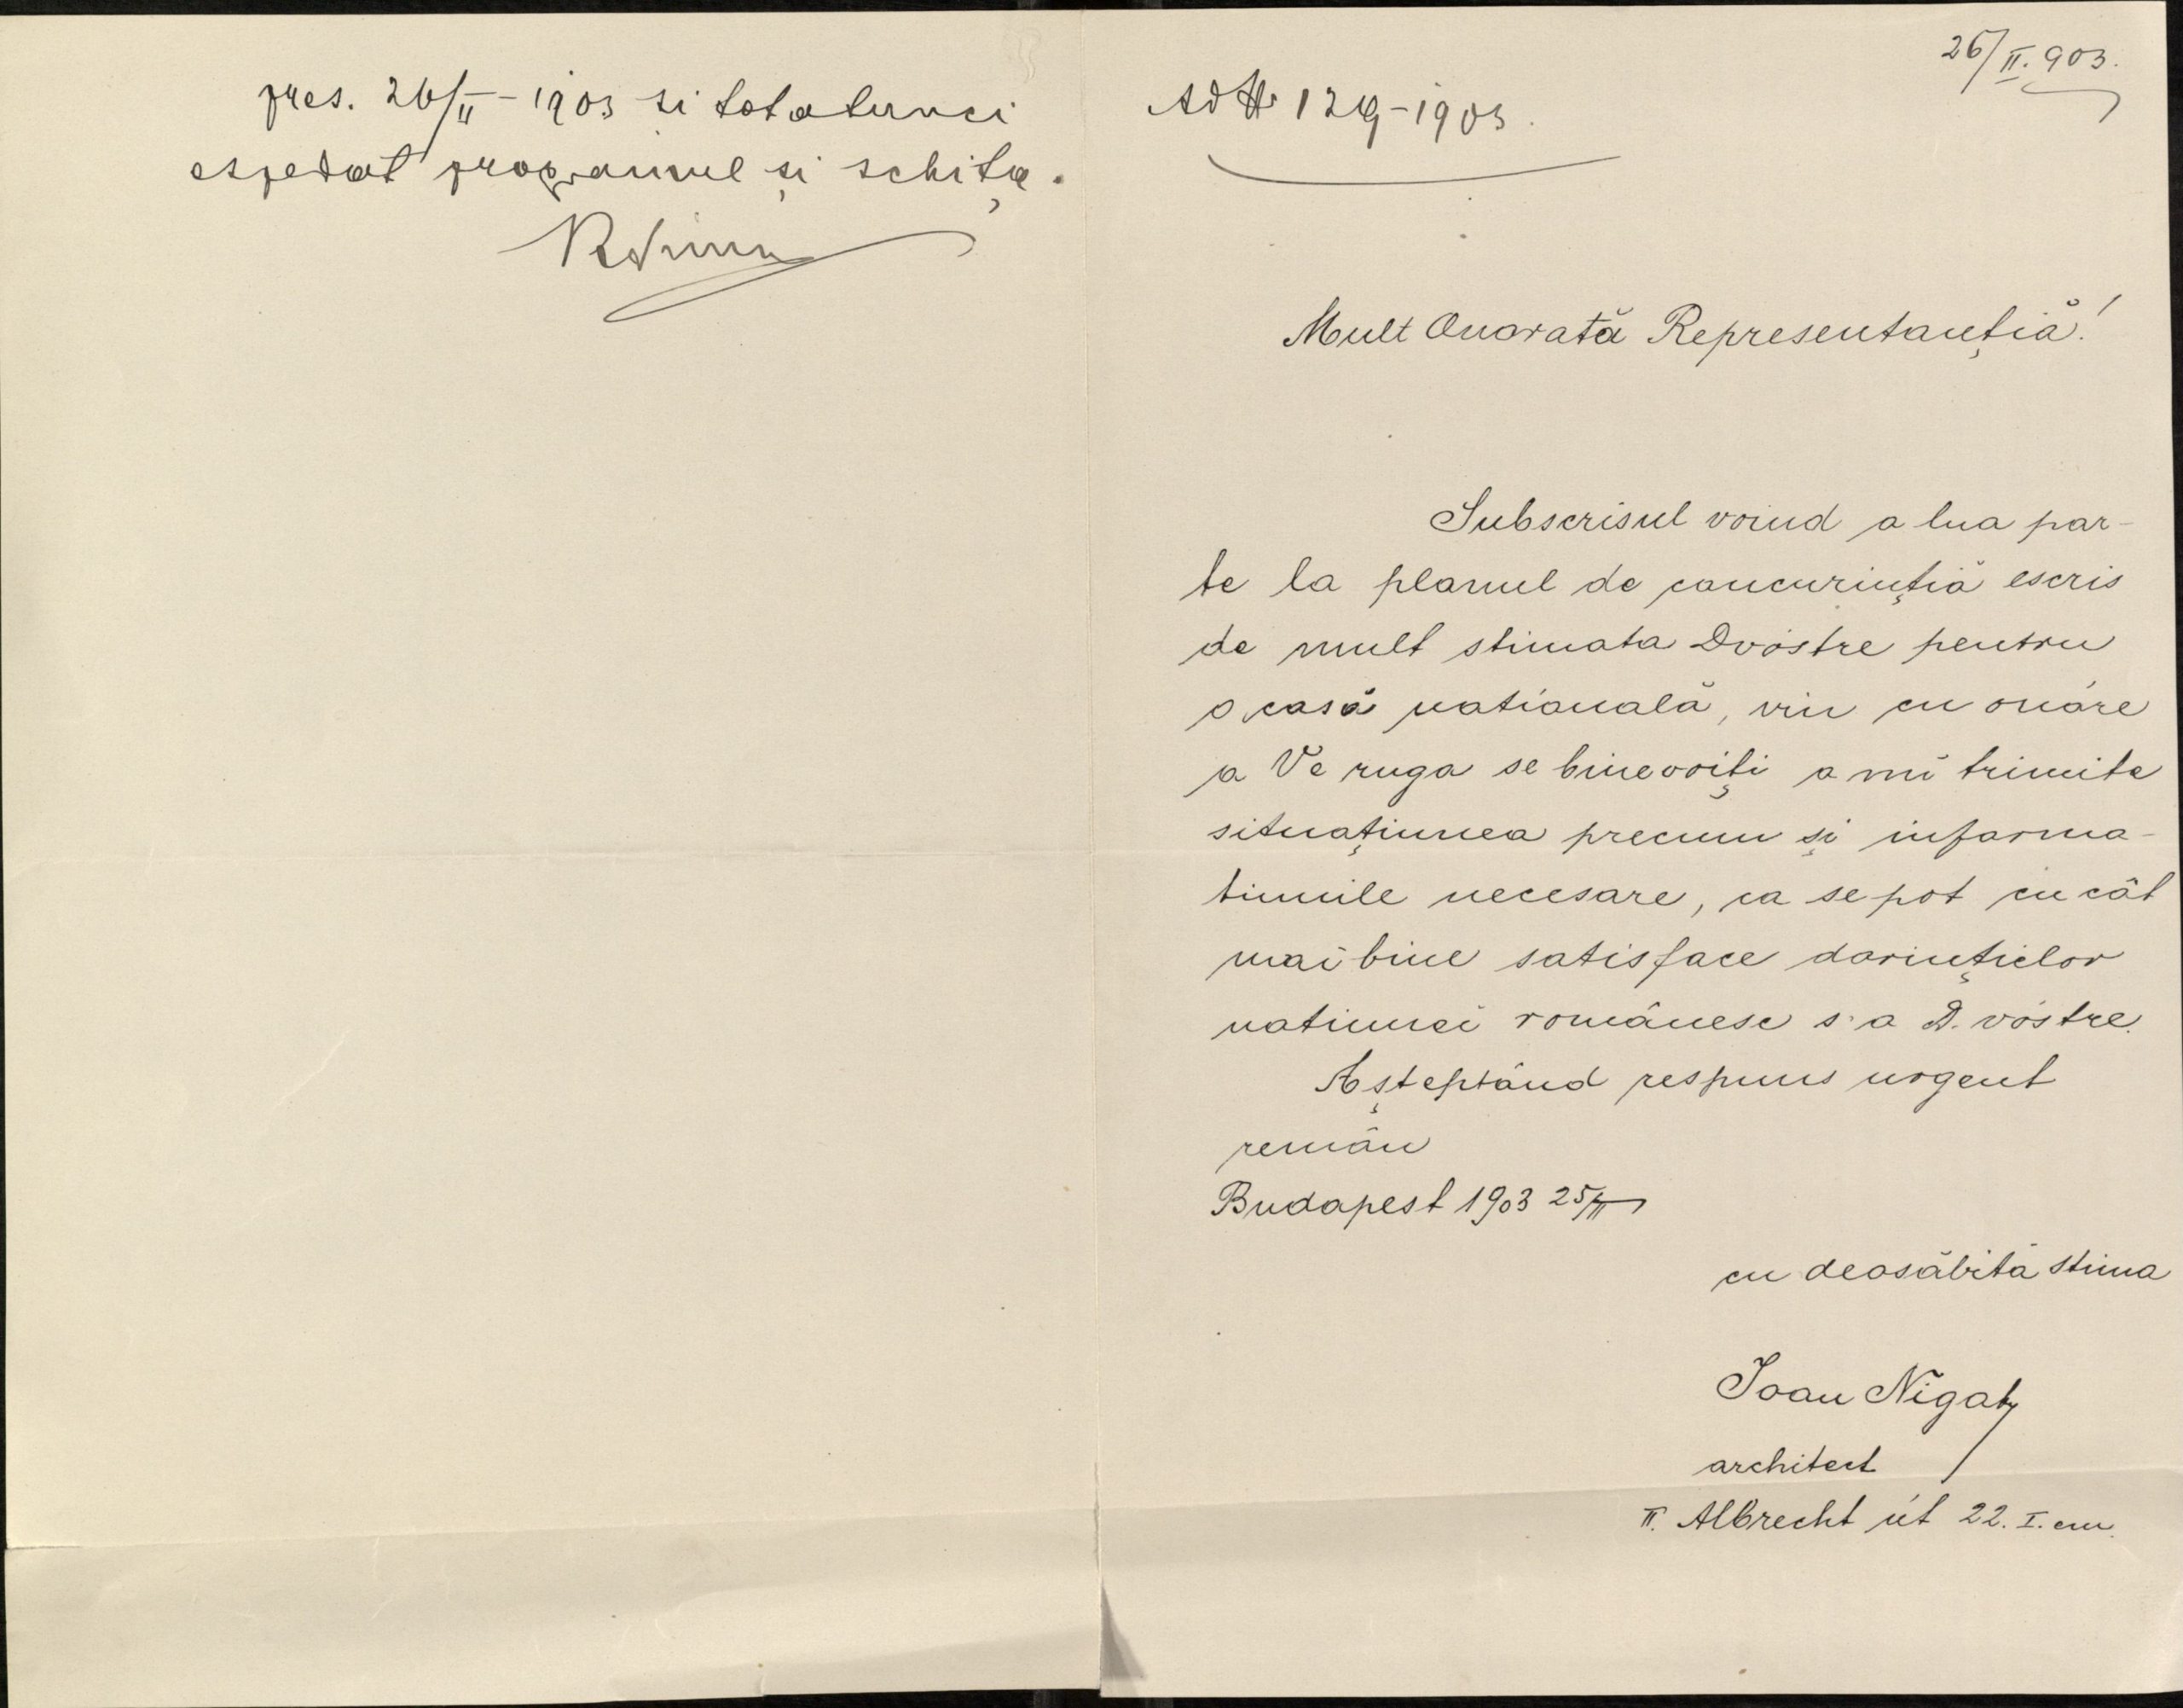 pres. 26/II - 1903 si totatunci
espedat programul și schița.
26/II. 903.
Ad Nr 129-1903.
Mult Onorată Representanțiă!
Subscrisul voind a lua par-
te la planul de concurințiă escris
de mult stimata Dvóstre pentru
o casă natională, vin cu onóre
a Ve ruga se binevoiți a mi trimite
situațiunea precum și informa-
tiunile necesare, ca se pot cu cât
mai bine satisface dorințielor
natiunei românesc s a D. vóstre.
Așteptând respuns urgent
remân
Budapest 1903 25/II
cu deosăbită stima
Ioan Nigats
architect
II. Albrecht út 22. I. em.